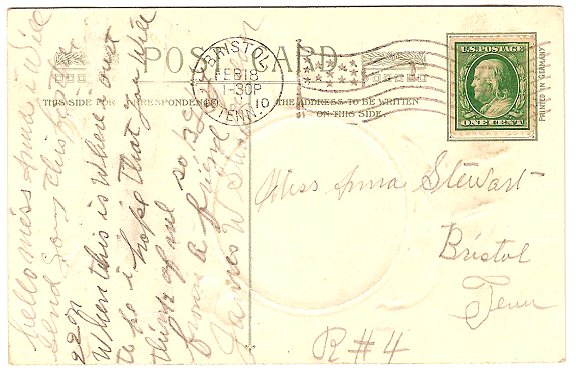 POST CARD
THIS SIDE FOR CORRESPONDENCE
THE ADDRESS TO BE WRITTEN
ON THIS SIDE
BRISTOL
FEB 18
1-30P
1910
TENN.
U.S. POSTAGE
ONE CENT
PRINTED IN GERMANY
Miss Anna Stewart
Bristol
Tenn
R#4
hello miss anna i will
send you this
When this is Where
to be i hope that you will
think of me so
from a friend
James W